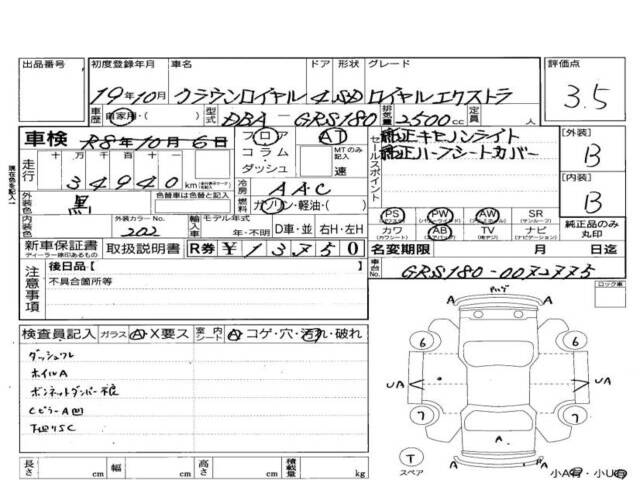 出品番号 初度登録年月 車名 ドア 形状 グレード 評価点
19年10月 クラウンロイヤル 4WD ロイヤルエクストラ 3.5
車歴 自家用・( ) 型式 DBA-GRS180 排気量 2500cc 定員 人
車検 R8年10月6日 フロア AT セールスポイント 純正キセノンライト [外装]
十 万 千 百 十 一 コラム MTのみ記入 純正ハーフシートカバー B
走行 34940 km ダッシュ 速
現在色を記入 冷房 AAC [内装]
外装色 黒 色替車は色替と記入 燃料 ガソリン・軽油・( ) B
PS PW AW SR
(パワーウインド) (サンルーフ)
内装色 外装カラーNo. 202 輸入車 モデル年式 年・不明 D車・並 右H・左H カワ AB TV ナビ 純正品のみ丸印
(カワシート) (エアバッグ) (ナビゲーション)
新車保証書 取扱説明書 R券 ¥13750 名変期限 月 日迄
ディーラー様印あるもの
注意事項 後日品[ ] 車台No. GRS180-0072775
不具合箇所等 ロック車
A A
検査員記入 ガラス A・X要ス 室内シート A・コゲ・穴・汚れ・破れ
6 6
ダッシュフレ
ホイルA
UA UA
ボンネットダンパー不良
CピラーA凹
7 7
下廻りSC
A
T
スペア A A
長さ cm 幅 cm 高さ cm 積載量 kg 小A有・小U有